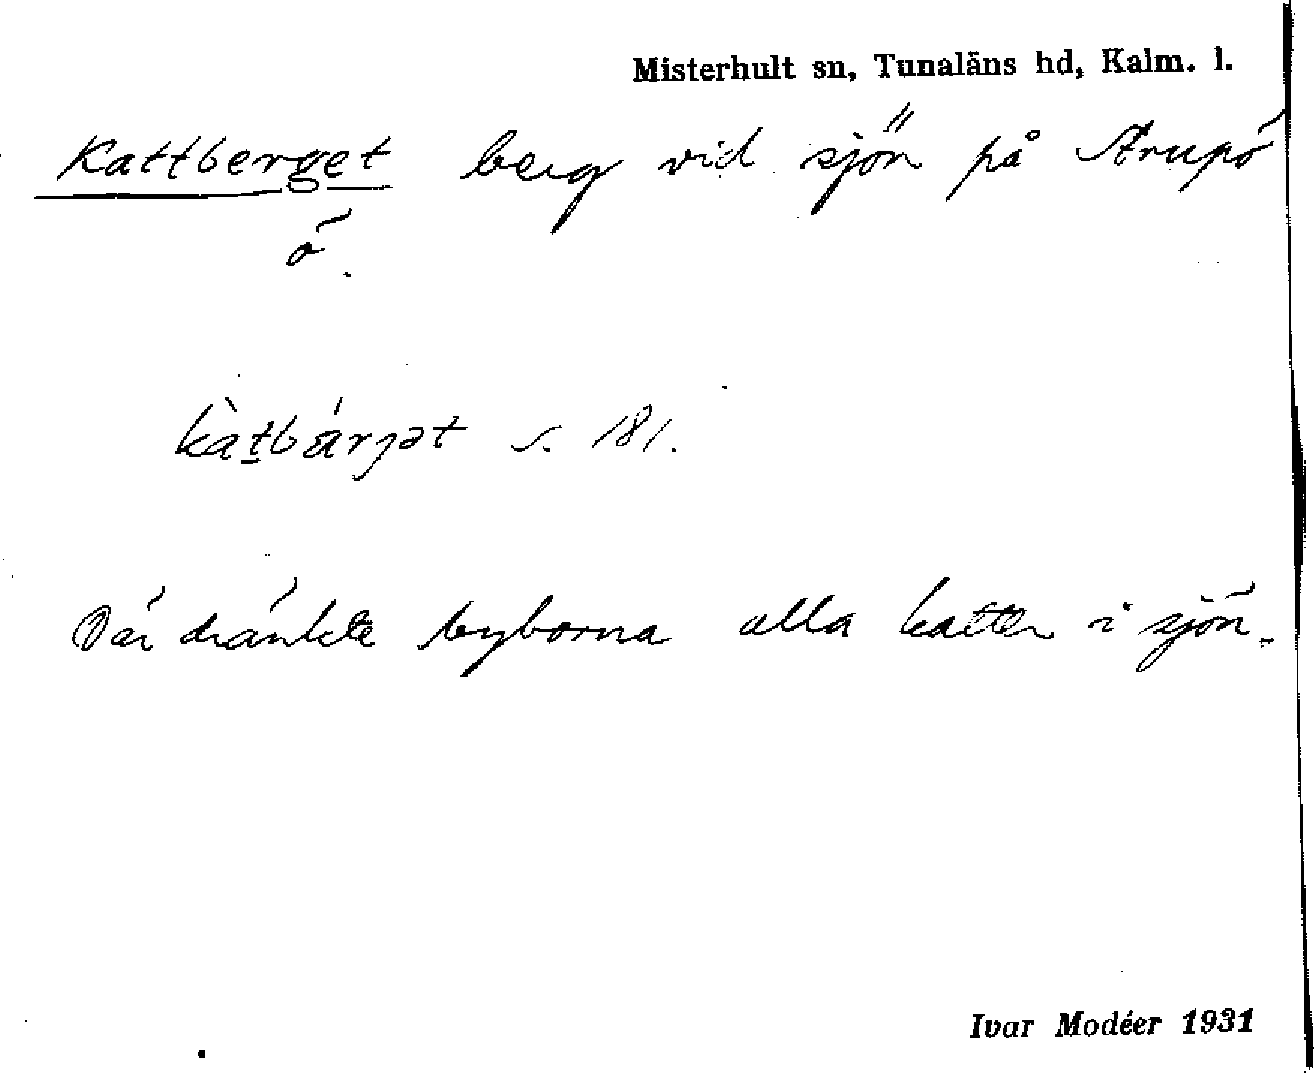 Misterhult sn, Tunaläns hd, Kalm. l.
Kattberget berg vid sjön på Strupö
ö.
kàt̲bárjət s. 181.
Där dränkte byborna alla katter i sjön.
Ivar Modéer 1931